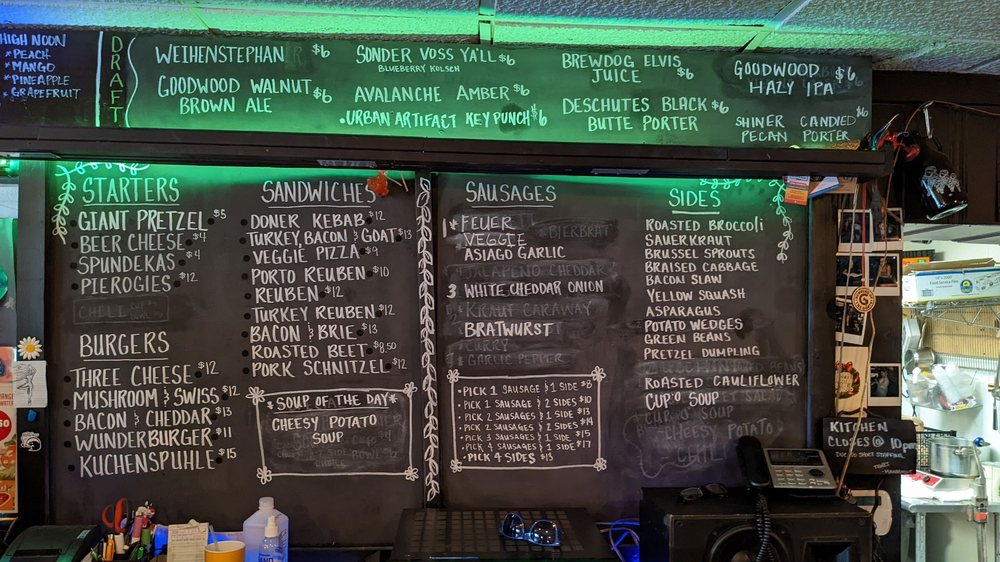 HIGH NOON
*PEACH
*MANGO
*PINEAPPLE
*GRAPEFRUIT
DRAFT
WEIHENSTEPHAN $6
GOODWOOD WALNUT $6
BROWN ALE
SONDER VOSS Y'ALL $6
BLUEBERRY KOLSCH
AVALANCHE AMBER $6
URBAN ARTIFACT KEY PUNCH $6
BREWDOG ELVIS
JUICE $6
DESCHUTES BLACK $6
BUTTE PORTER
GOODWOOD $6
HAZY IPA
SHINER CANDIED $6
PECAN PORTER
STARTERS
GIANT PRETZEL $5
BEER CHEESE $4
SPUNDEKAS $4
PIEROGIES $12
CHILI
BURGERS
THREE CHEESE $12
MUSHROOM & SWISS $12
BACON & CHEDDAR $13
WUNDERBURGER $11
KUCHENSPUHLE $15
SANDWICHES
DONER KEBAB $12
TURKEY, BACON & GOAT $13
VEGGIE PIZZA $9
PORTO REUBEN $10
REUBEN $12
TURKEY REUBEN $12
BACON & BRIE $13
ROASTED BEET $8.50
PORK SCHNITZEL $12
*SOUP OF THE DAY*
CHEESY POTATO
SOUP
SAUSAGES
1* FEUER
VEGGIE
BIERBRAT
ASIAGO GARLIC
JALAPENO CHEDDAR
3 WHITE CHEDDAR ONION
KRAUT CARAWAY
BRATWURST
CURRY
GARLIC PEPPER
PICK 1 SAUSAGE & 1 SIDE $8
PICK 1 SAUSAGE & 2 SIDES $10
PICK 2 SAUSAGES & 1 SIDE $13
PICK 2 SAUSAGES & 2 SIDES $14
PICK 3 SAUSAGES & 1 SIDE $15
PICK 4 SAUSAGES & 1 SIDE $17
PICK 4 SIDES $13
SIDES
ROASTED BROCCOLI
SAUERKRAUT
BRUSSEL SPROUTS
BRAISED CABBAGE
BACON SLAW
YELLOW SQUASH
ASPARAGUS
POTATO WEDGES
GREEN BEANS
PRETZEL DUMPLING
ROASTED CAULIFLOWER
CUP O SOUP
CUP O SOUP
CHEESY POTATO
CHILI
KITCHEN
CLOSES @ 10pm
DUE TO SHORT STAFFING